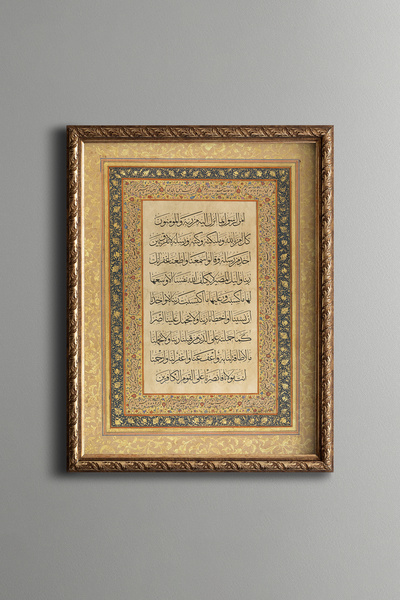 امن الرسول بما انزل اليه من ربه والمومنون
كل امن بالله وملئكته وكتبه ورسله لا نفرق بين
احد من رسله وقالوا سمعنا واطعنا غفرانك
ربنا واليك المصير لا يكلف الله نفسا الا وسعها
لها ما كسبت وعليها ما اكتسبت ربنا لا تواخذنا
ان نسينا او اخطانا ربنا ولا تحمل علينا اصرا
كما حملته على الذين من قبلنا ربنا ولا تحملنا
ما لا طاقة لنا به واعف عنا واغفر لنا وارحمنا
انت مولانا فانصرنا على القوم الكافرين